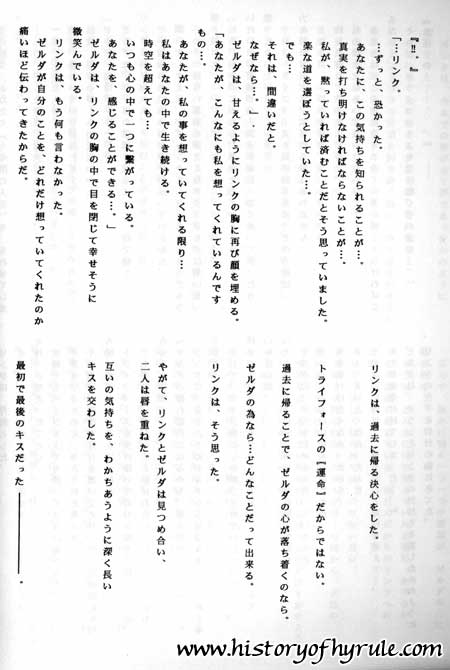 『!!。』
「…リンク。
…ずっと、恐かった。
あなたに、この気持ちを知られることが…。
真実を打ち明けなければならないことが…。
私が、黙っていれば済むことだとそう思っていました。
楽な道を選ぼうとしていた…。
でも…
それは、間違いだと。
なぜなら…。」
ゼルダは、甘えるようにリンクの胸に再び顔を埋める。
「あなたが、こんなにも私を想ってくれているんです
もの…。
あなたが、私の事を想っていてくれる限り…
私はあなたの中で生き続ける。
時空を超えても…
いつも心の中で一つに繋がっている。
あなたを、感じることができる…。」
ゼルダは、リンクの胸の中で目を閉じて幸せそうに
微笑んでいる。
リンクは、もう何も言わなかった。
ゼルダが自分のことを、どれだけ想っていてくれたのか
痛いほど伝わってきたからだ。
リンクは、過去に帰る決心をした。
トライフォースの【運命】だからではない。
過去に帰ることで、ゼルダの心が落ち着くのなら。
ゼルダの為なら…どんなことだって出来る。
リンクは、そう思った。
やがて、リンクとゼルダは見つめ合い、
二人は唇を重ねた。
互いの気持ちを、わかちあうように深く長い
キスを交わした。
最初で最後のキスだった―――――。
www.historyofhyrule.com